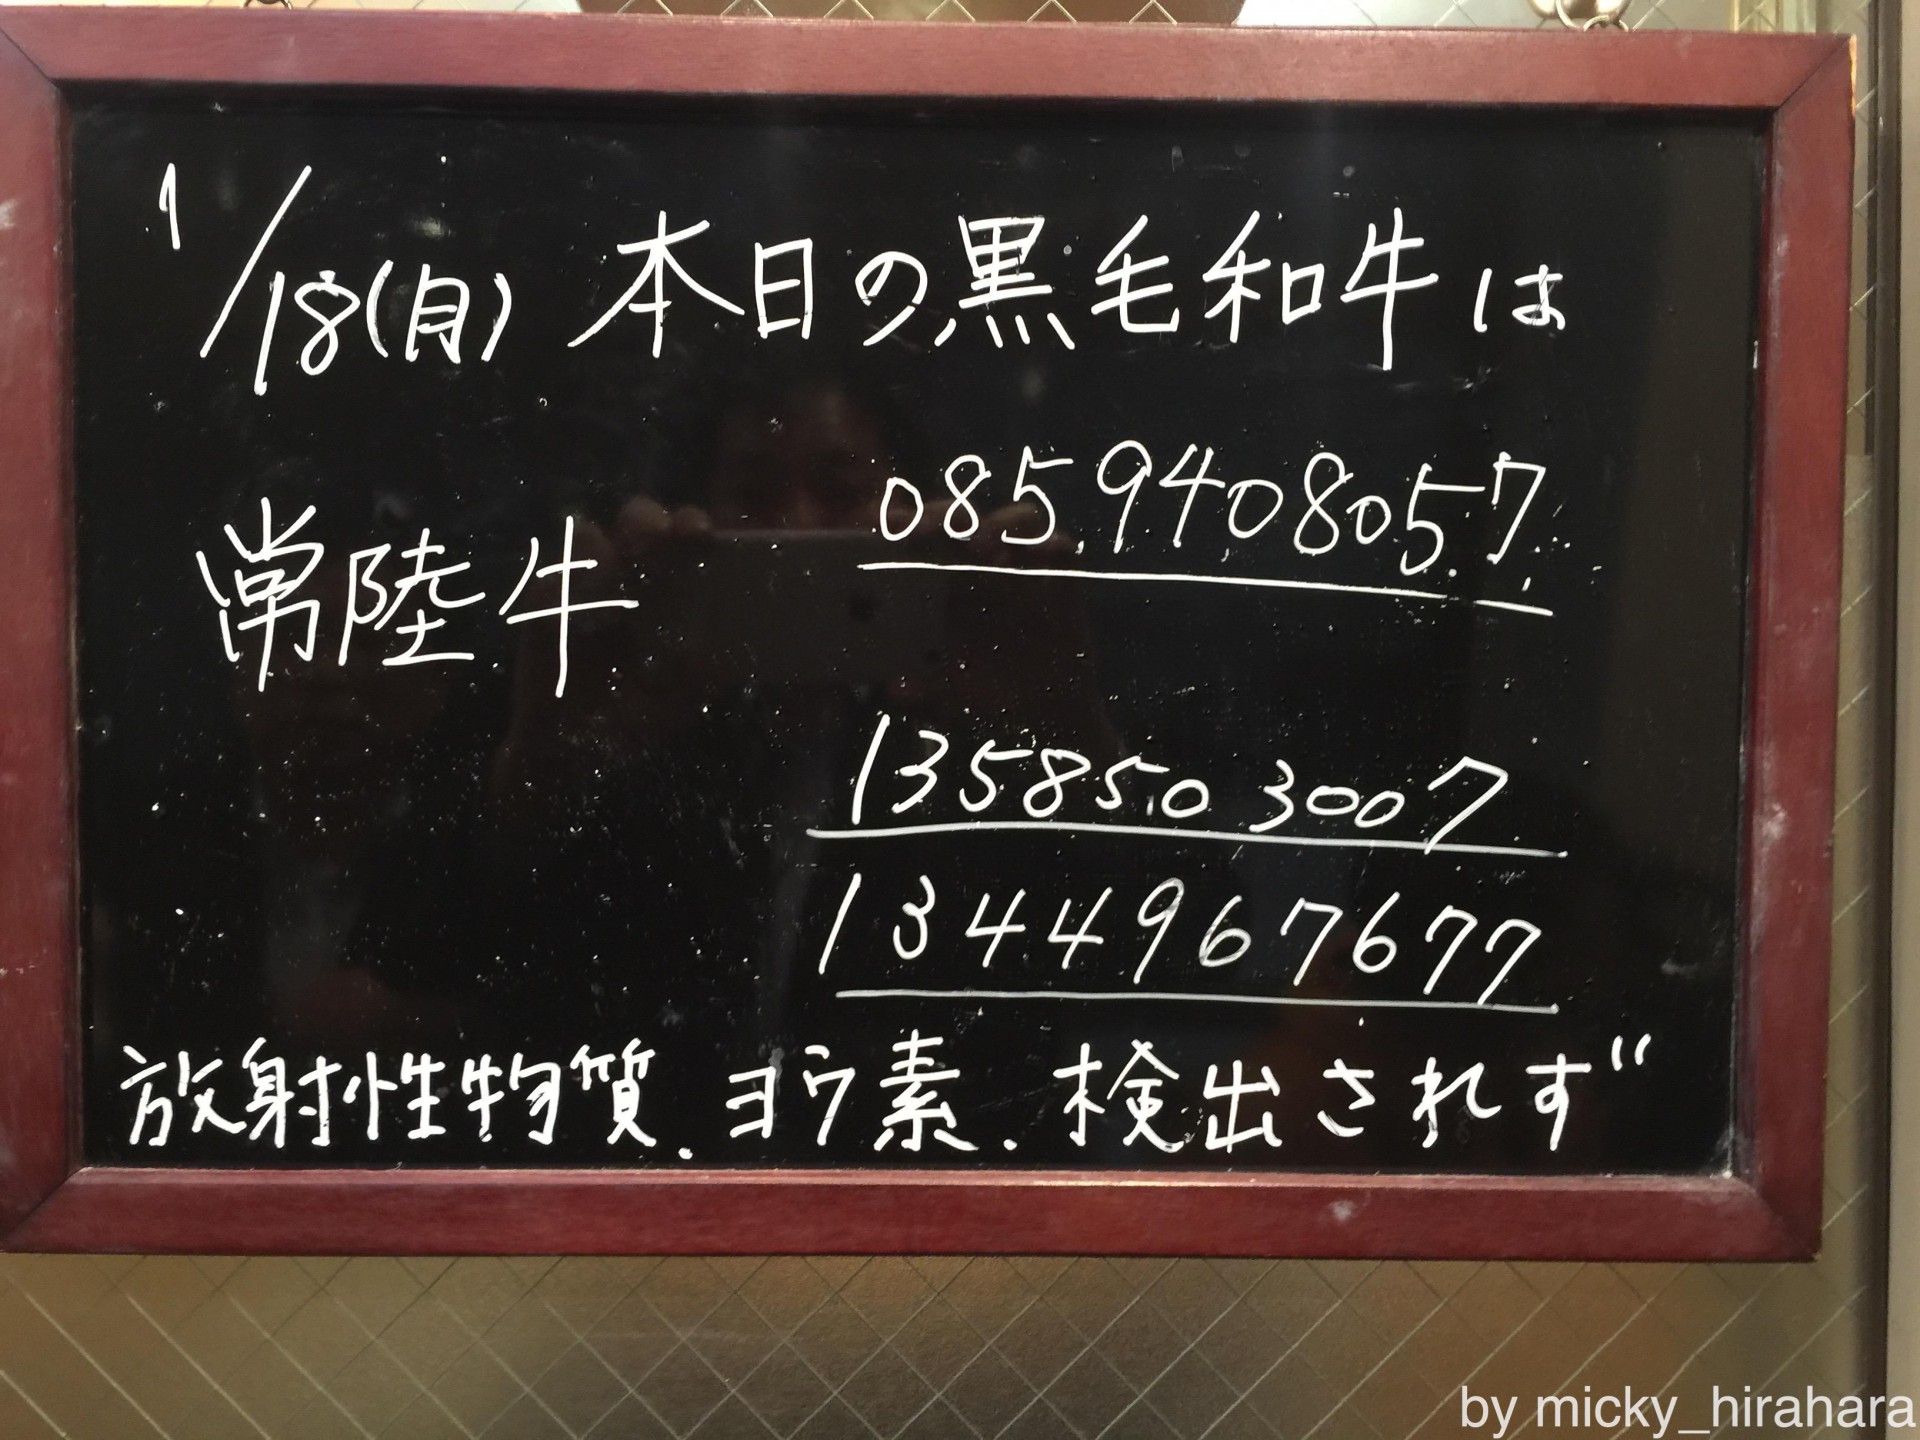 1/18(月) 本日の黒毛和牛は
常陸牛 0859408057
1358503007
1344967677
放射性物質.ヨウ素.検出されず
by micky_hirahara